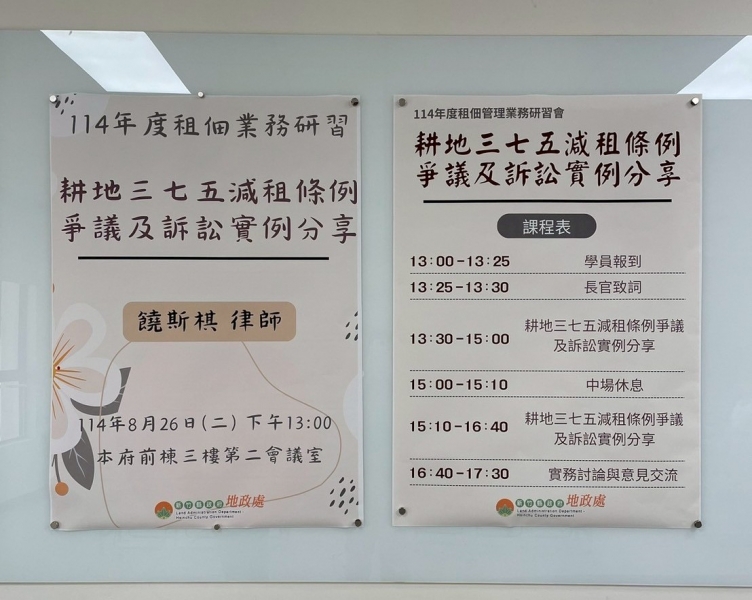 114年度租佃業務研習
耕地三七五減租條例
爭議及訴訟實例分享
饒斯棋 律師
114年8月26日(二) 下午13:00
本府前棟三樓第二會議室
新竹縣政府 地政處
Land Administration Department,
Hsinchu County Government
114年度租佃管理業務研習會
耕地三七五減租條例
爭議及訴訟實例分享
課程表
13:00-13:25 學員報到
13:25-13:30 長官致詞
13:30-15:00 耕地三七五減租條例爭議
及訴訟實例分享
15:00-15:10 中場休息
15:10-16:40 耕地三七五減租條例爭議
及訴訟實例分享
16:40-17:30 實務討論與意見交流
新竹縣政府 地政處
Land Administration Department,
Hsinchu County Government